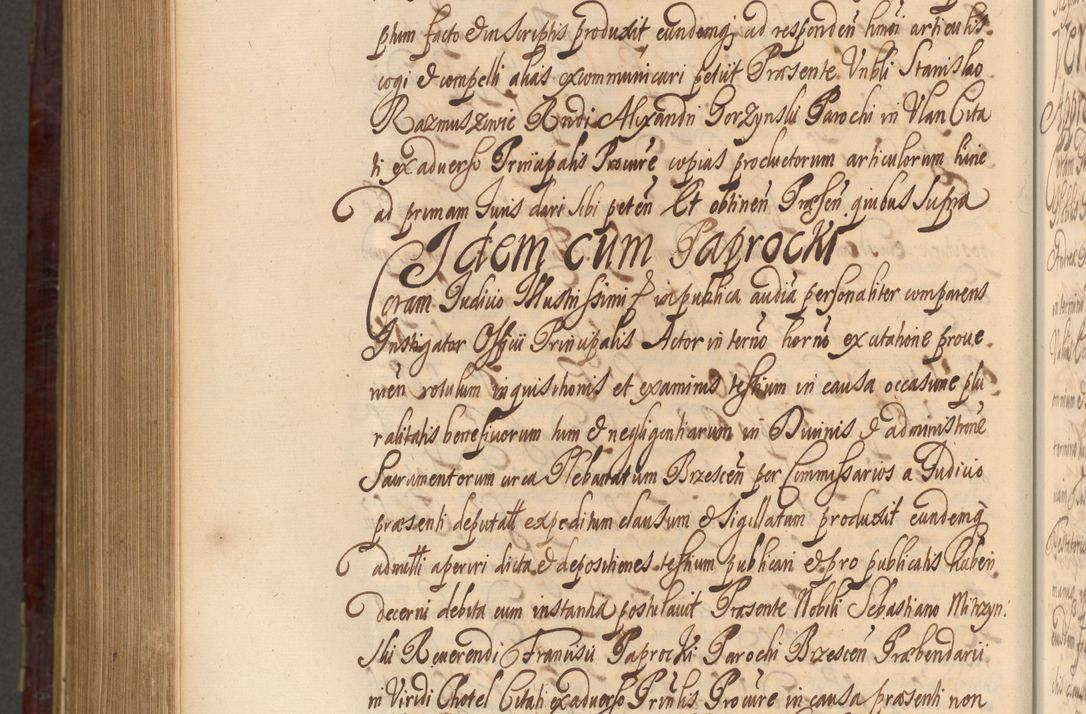 ptum facto et in scriptis produxit eundemq; ad responden huiūi articulis
cogi et compelli alias excommunicari petiit Præsente Vnbli Stanislao
Razmuszovic Rndi Alexandri Gorzynski Parochi in Vlan Cita
ti ex adverso Principalis Procure copias productorum articulorum hinc
ad primam Juris dari sibi peteñ Et obtineñ Præseñ. quibus supra
Idem cum Paprocki
Coram Judicio Illustrissimi in publica audiā personaliter comparens
Instigator Officii Principalis Actor in terno horño ex citatione prove
nieñ rotulum inquisitionis et examinis testium in causa occasione plu
ralitatis beneficiorum tum et negligentiarum in Divinis et administrōne
Sacramentorum circa Plebanatum Brzesceñ per Commissarios a Judicio
præsenti deputatt expeditum clausum et sigillatum produxit eundemq
admitti aperiri dicta et depositiones testium publicari et pro publicatis haberi
decerni debita cum instantia postulavit Præsente Nobili Sebastiano Mirzyn:
ski Reverendi Francisci Paprocki Parochi Brzesceñ Præbendarii
in Viridi Chotel Citati ex adverso Prinlis Procure in causa præsenti non